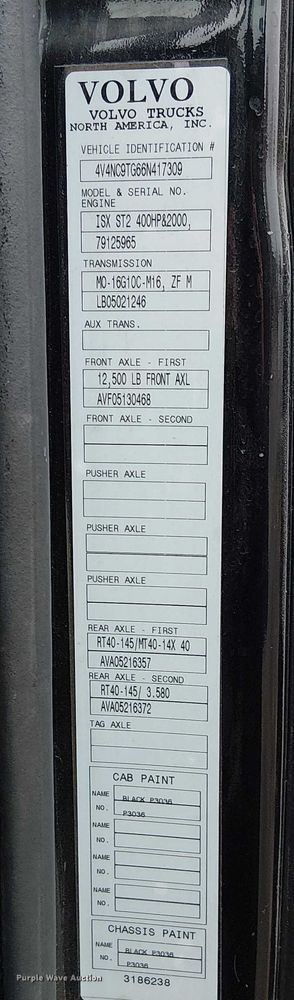 VOLVO
VOLVO TRUCKS
NORTH AMERICA, INC.
VEHICLE IDENTIFICATION #
4V4NC9TG66N417309
MODEL & SERIAL NO.
ENGINE
ISX ST2 400HP&2000,
79125965
TRANSMISSION
MO-16G10C-M16, ZF M
LB05021246
AUX TRANS.
FRONT AXLE - FIRST
12,500 LB FRONT AXL
AVF05130468
FRONT AXLE - SECOND
PUSHER AXLE
PUSHER AXLE
PUSHER AXLE
REAR AXLE - FIRST
RT40-145/MT40-14X 40
AVA05216357
REAR AXLE - SECOND
RT40-145/ 3.580
AVA05216372
TAG AXLE
CAB PAINT
NAME BLACK P3036
NO. P3036
NAME
NO.
NAME
NO.
NAME
NO.
CHASSIS PAINT
NAME BLACK P3036
NO. P3036
3186238
Purple Wave Auction